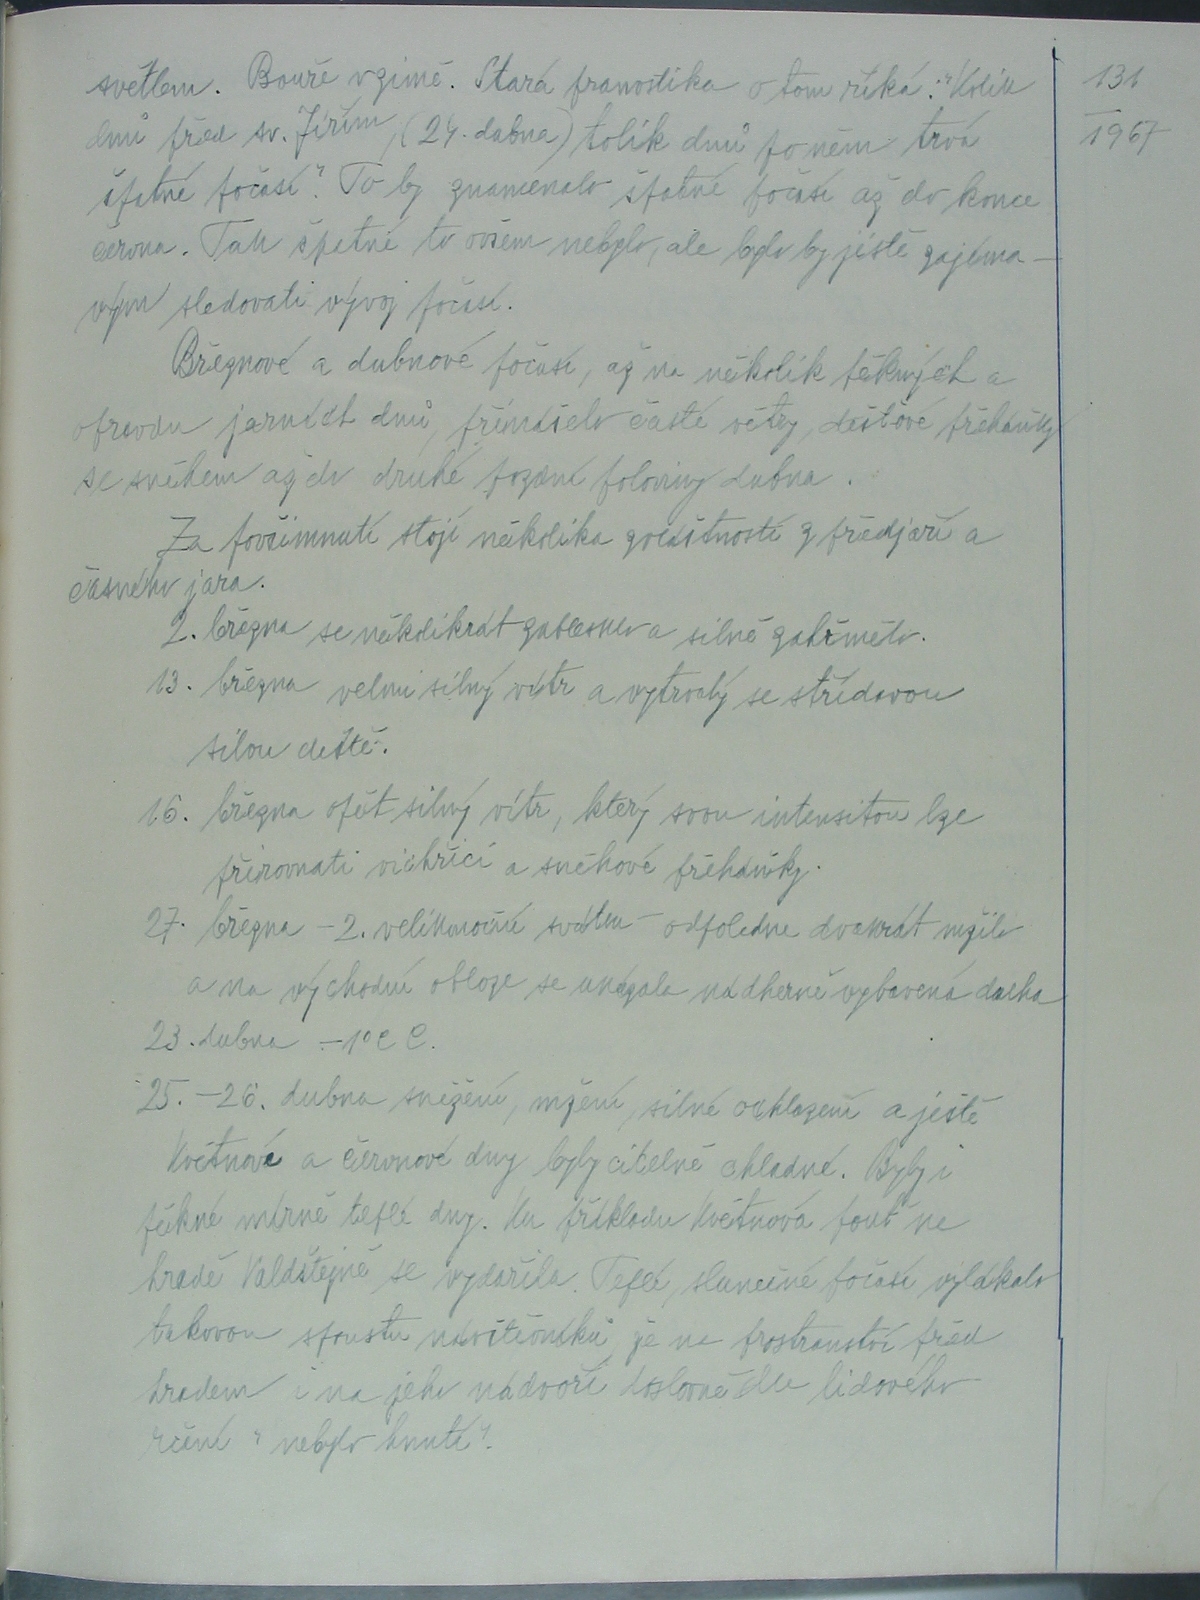 světlem. Bouře v zimě. Stará pranostika o tom říká: "Kolik
131
dnů před sv. Jiřím, (24. dubna) tolik dnů po něm trvá
1967
špatné počasí". To by znamenalo špatné počasí až do konce
června. Tak špatné to ovšem nebylo, ale bylo by jistě zajíma-
vým sledovati vývoj počasí.
Březnové a dubnové počasí, až na několik pěkných a
opravdu jarních dnů, přinášelo časté větry, dešťové přeháňky
se sněhem až do druhé pozdní poloviny dubna.
Za povšimnutí stojí několika zvláštností z předjaří a
časného jara.
2. března se několikrát zablesklo a silně zahřmělo.
13. března velmi silný vítr a vytrvalý se střídavou
silou deště.
16. března opět silný vítr, který svou intensitou lze
přirovnati vichřici a sněhové přeháňky.
27. března - 2. velikonoční svátek - odpoledne dvakrát mžilo
a na východní obloze se ukázala nádherně vybavená duha
23. dubna -1° C.
25. - 26. dubna sněžení, mžení, silné ochlazení a ještě
Květnové a červnové dny byly citelně chladné. Byly i
pěkné mírně teplé dny. Ku příkladu Květnová pouť na
hradě Valdštejně se vydařila. Teplé, slunečné počasí vylákalo
takovou spoustu návštěvníků, že na prostranství před
hradem i na jeho nádvoří doslovně dle lidového
rčení "nebylo hnutí".